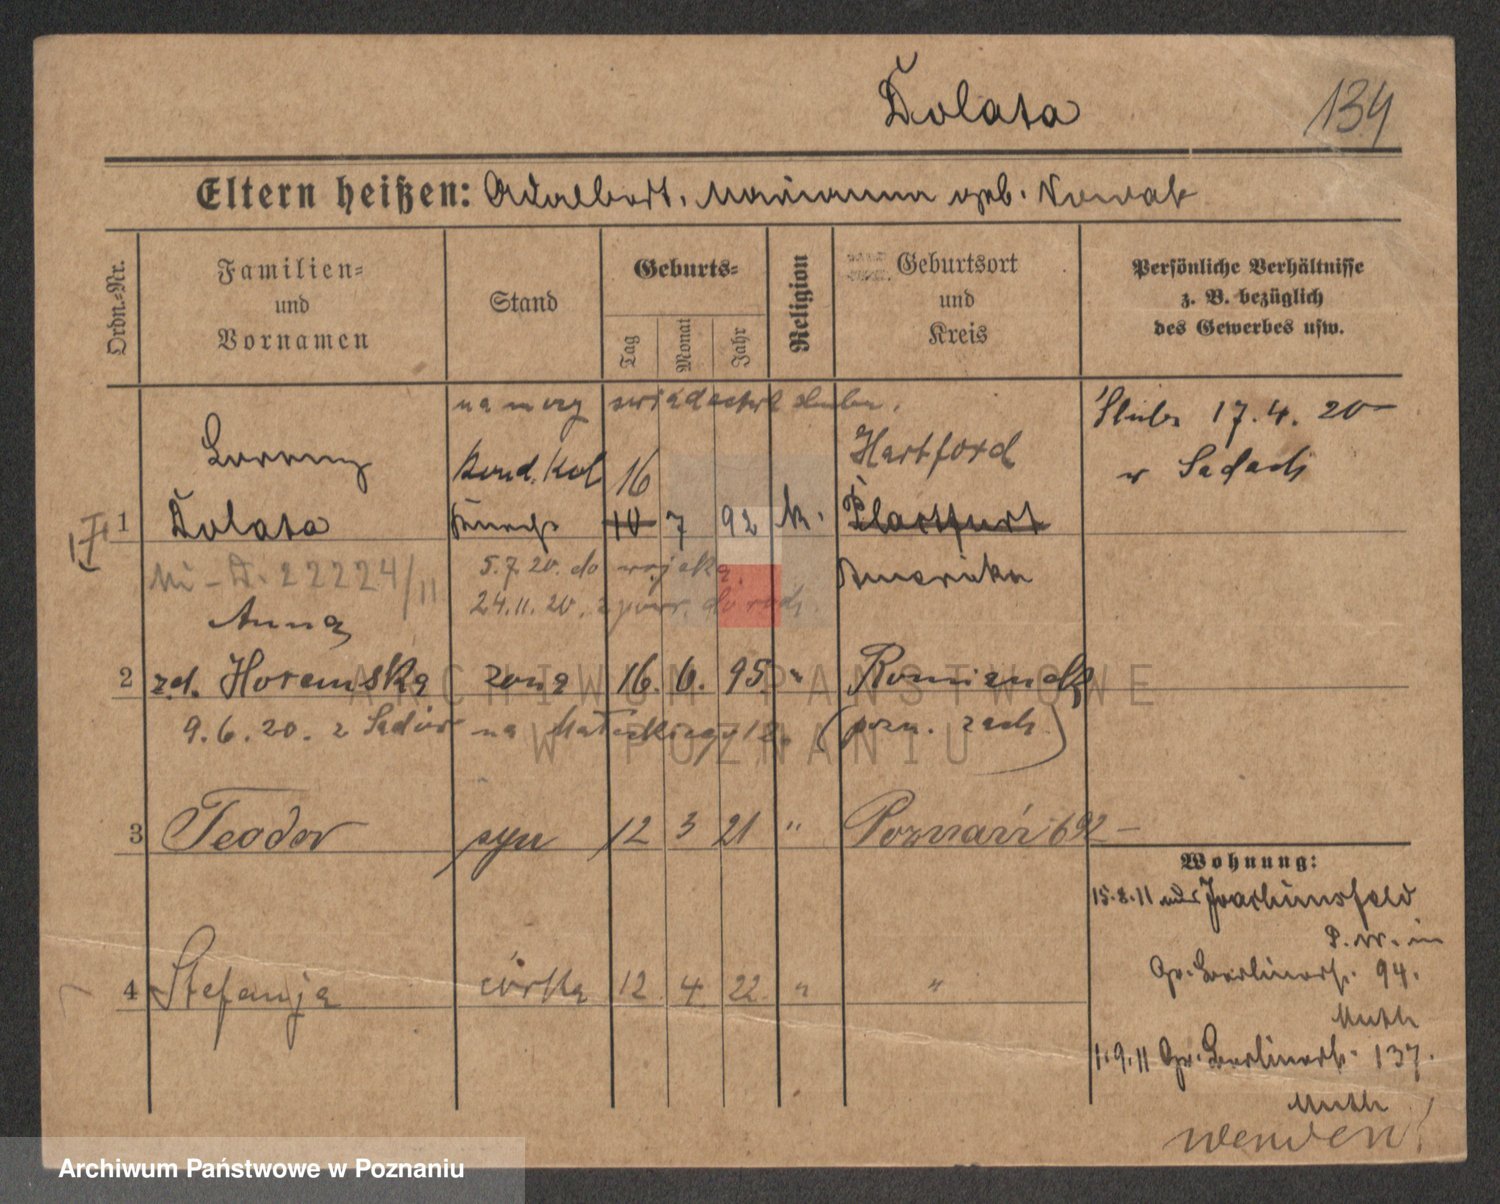 Dolata
134
Eltern heißen: Adalbert. Marianna geb. Nowak
Ordn.-Nr.
Familien-
und
Vornamen
Stand
Geburts-
Tag
Monat
Jahr
Religion
Geburtsort
und
Kreis
Persönliche Verhältnisse
z. B. bezüglich
des Gewerbes usw.
na mocy ślubu.
Lorenz
16
Hartford
Ślub 17.4.20
w Sadach
1
Dolata
10 7 92 k.
Amerika
D. 22224/11
5.7.20. do wojska.
24.11.20. z powr. do rodz.
Anna
2 zd. Horemska żona 16. 6. 95 "
9.6.20. z Sadów na Mateckiego 12. (pozn. zach.)
3 Teodor syn 12 3 21 " Poznań 692
4 Stefanja córka 12 4 22 " "
Wohnung:
15.8.11 Joachimsfeld
P. W. in
Gr. Berlinerstr. 94.
Muth
1.9.11 Gr. Berlinerstr. 137.
Muth
wenden!
ARCHIWUM PAŃSTWOWE
W POZNANIU
Archiwum Państwowe w Poznaniu